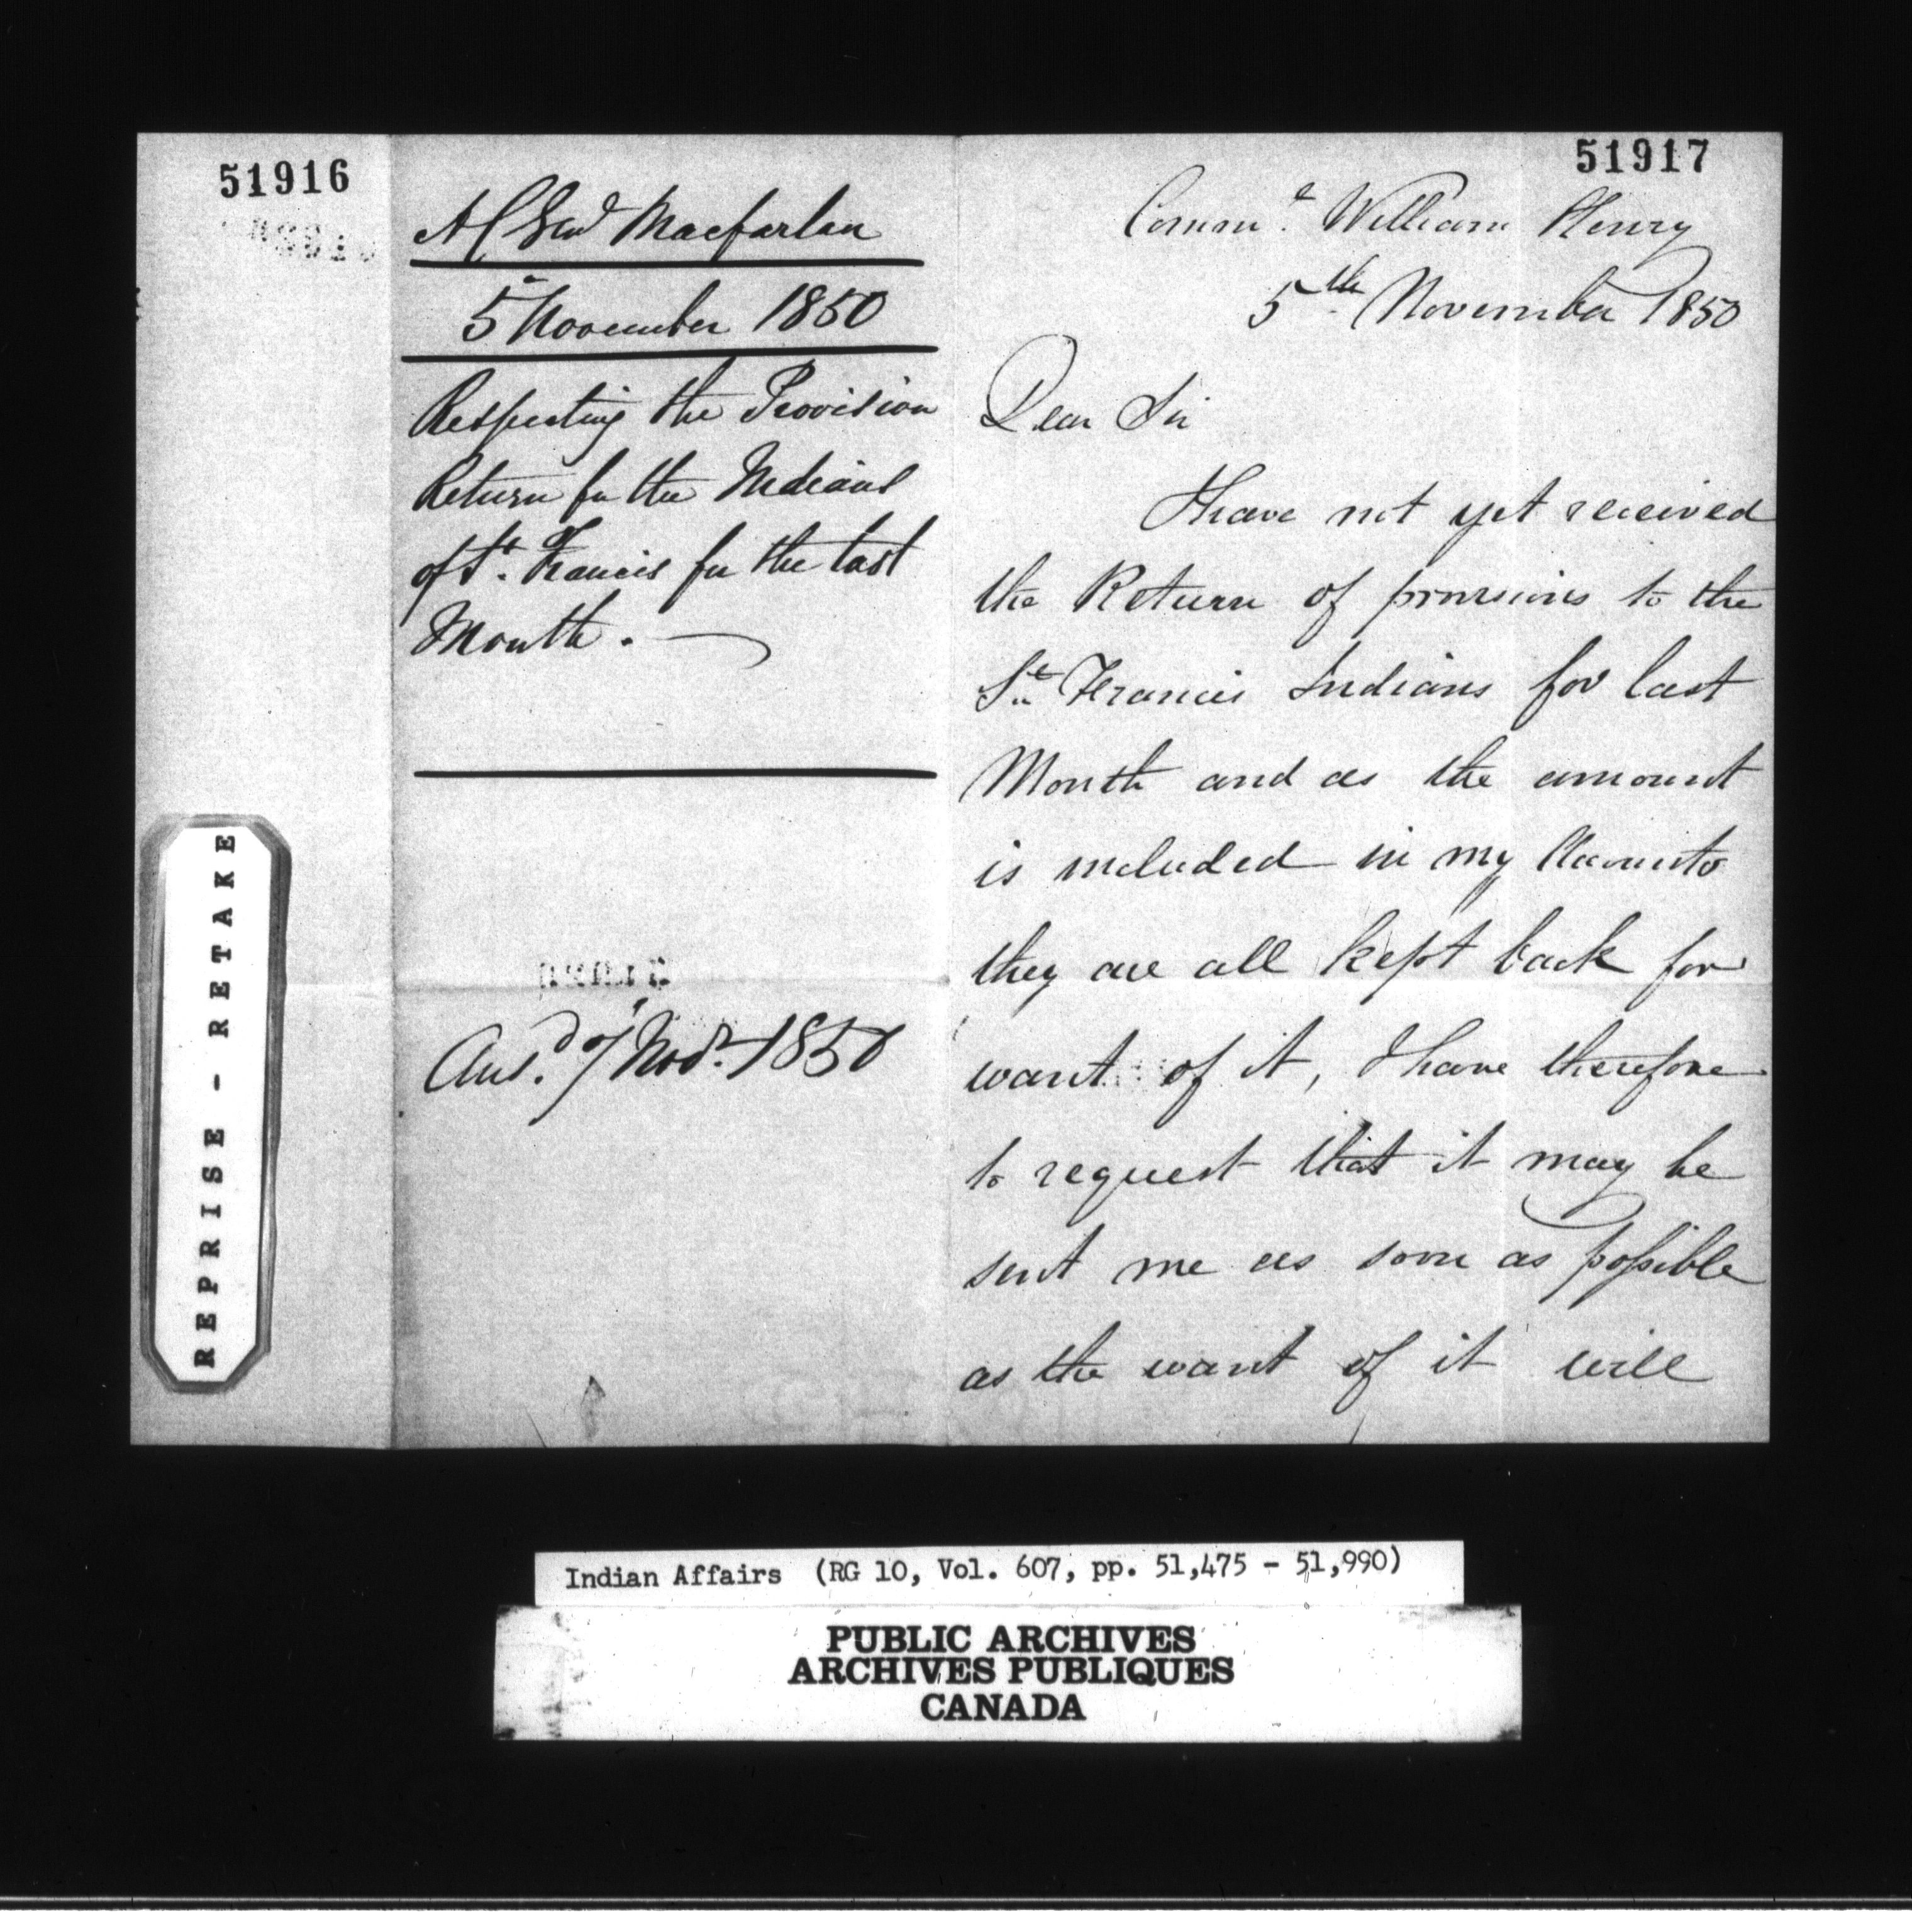 51916
A C Genl Macfarlan
5 November 1850
Respecting the Provision
Return for the Indians
of St. Francis for the last
Month.
Ansd 7 Novr 1850
REPRISE - RETAKE
51917
Commt. William Henry
5th November 1850
Dear Sir
I have not yet received
the Return of provisions to the
St. Francis Indians for last
Month and as the amount
is included in my Accounts
they are all kept back for
want of it, I have therefore
to request that it may be
sent me as soon as possible
as the want of it will
Indian Affairs (RG 10, Vol. 607, pp. 51,475 - 51,990)
PUBLIC ARCHIVES
ARCHIVES PUBLIQUES
CANADA